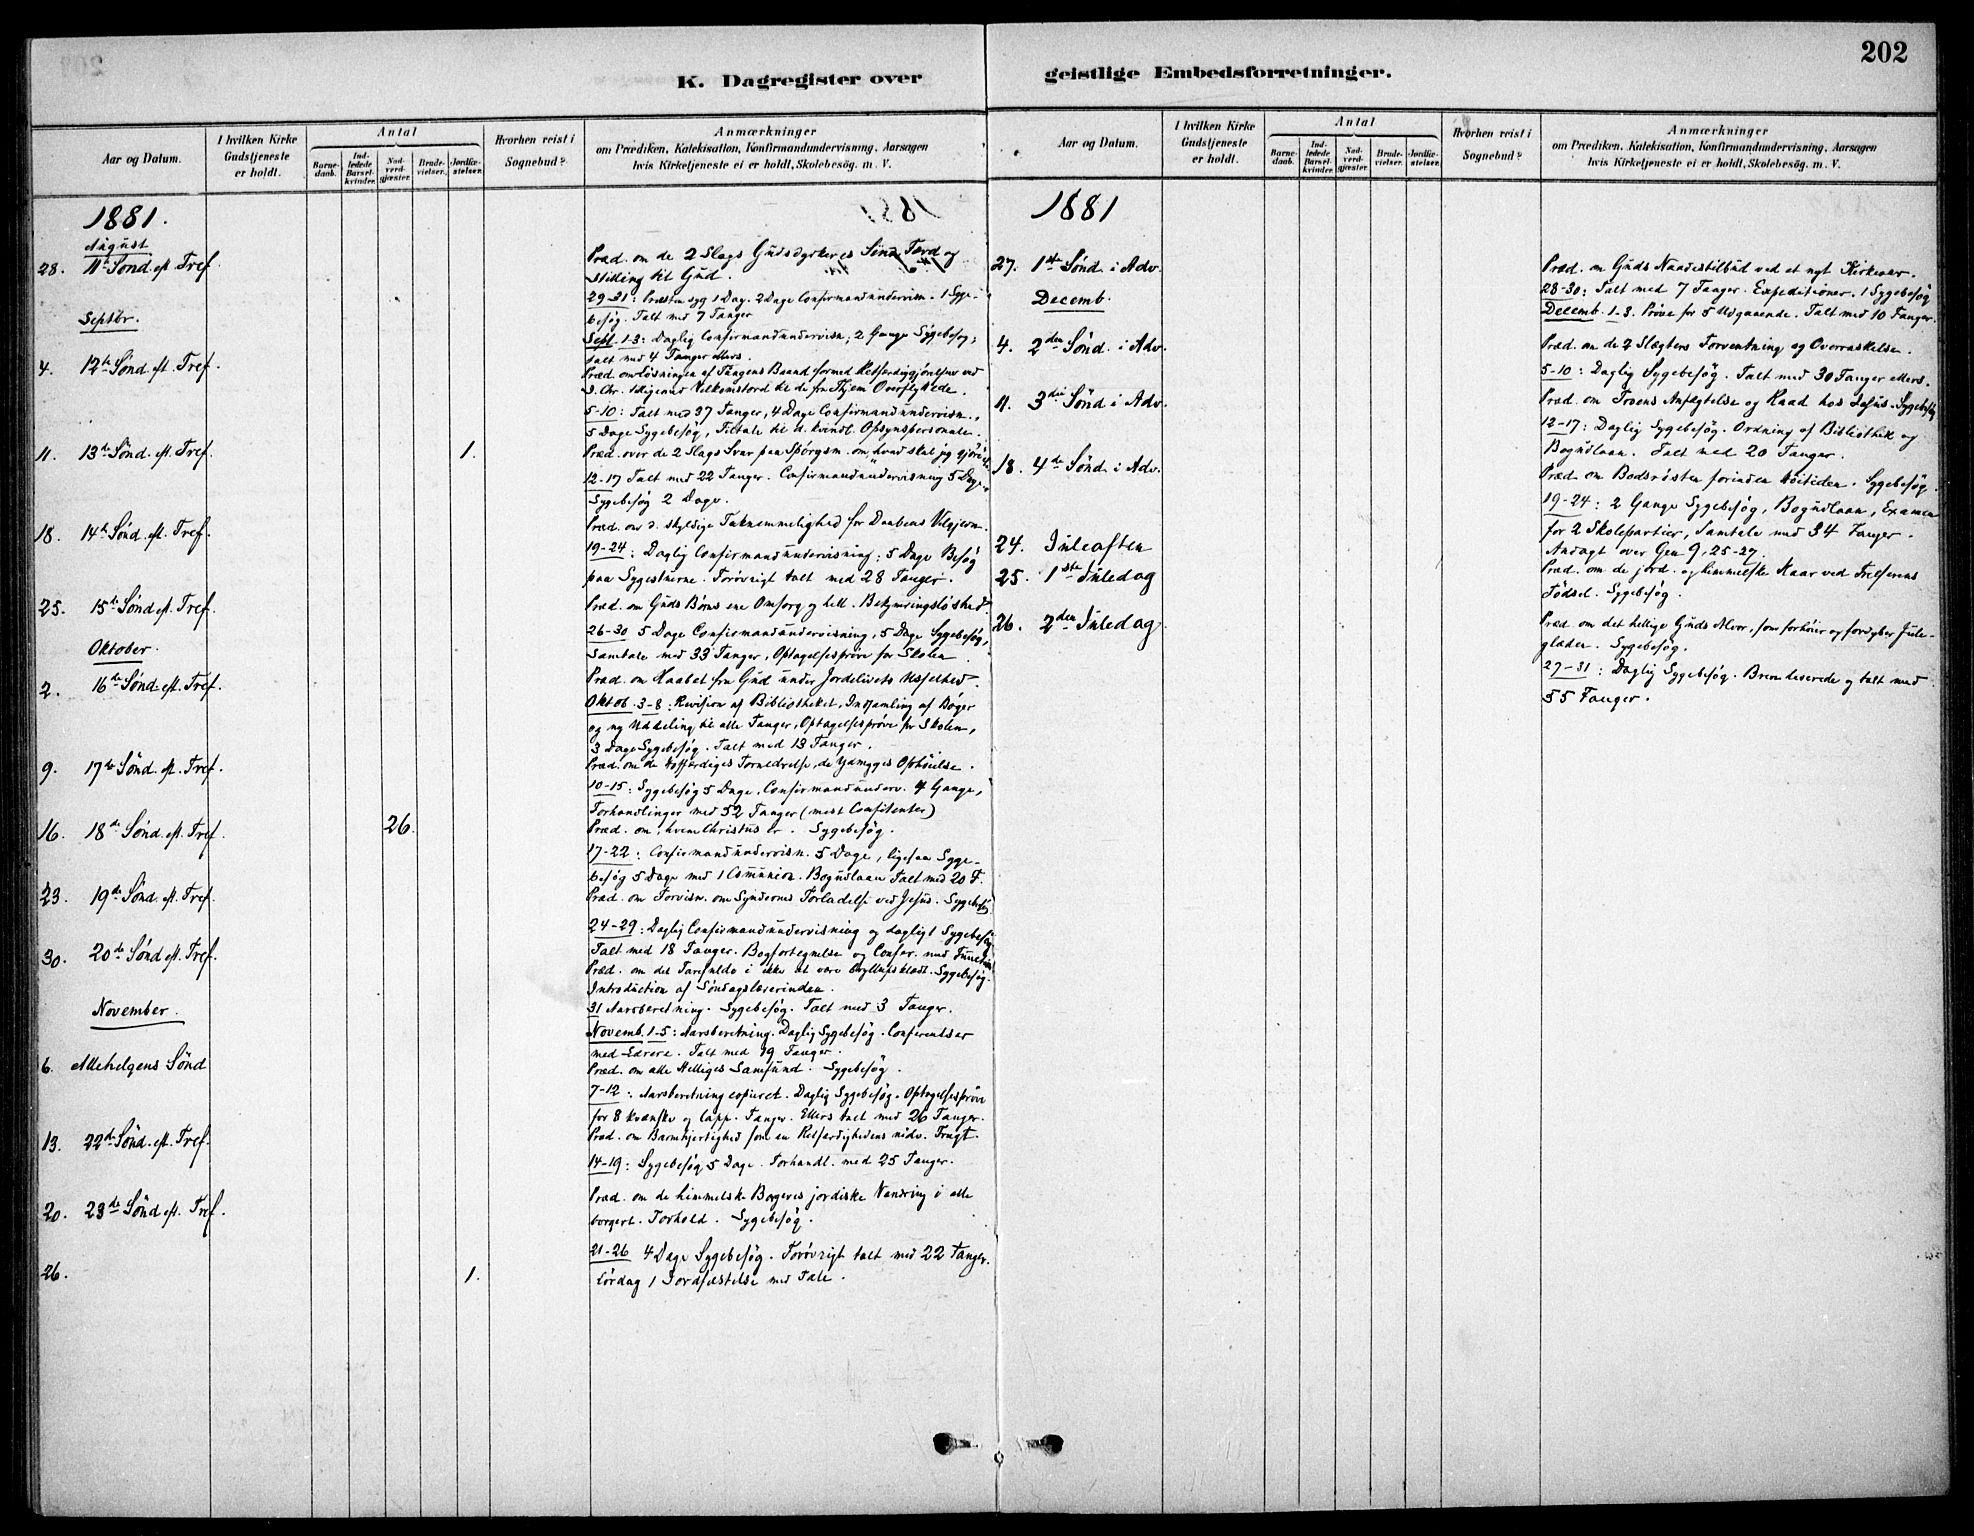 202
K. Dagregister over
geistlige Embedsforretninger.
Aar og Datum.
I hvilken Kirke Gudstjeneste er holdt.
Antal
Barne-daab.
Ind-ledede Barsel-kvinder.
Nad-verd-gjæster.
Brude-vielser.
Jordfæ-stelser.
Hvorhen reist i Sognebud?
Anmærkninger
om Prædiken, Katekisation, Konfirmandundervisning, Aarsagen
hvis Kirketjeneste ei er holdt, Skolebesög. m. V.
1881.
August
28. 11te Sønd. eft. Tref.
Præd. om de 2 Slags Gudsdyrkeres Sind, Færd og
Stilling til Gud.
29-31: Præsten syg 1 Dag. 2 Dage Confirmandundervisn. 1 Syge-
besøg. Talt med 7 Fanger
Septbr.
Sept. 1-3: Daglig Confirmandundervisn, 2 Gange Sygebesøg,
talt med 4 Fanger ellers.
4. 12te Sønd. eft. Tref.
Præd. om Løsningen af Tungens Baand formed Retfærdiggjørelsen ved
J. Chr. Velkomstord til de fra Overflyttede.
5-10: Talt med 37 Fanger, 4 Dage Confirmandundervisn.,
5 Dage Sygebesøg, Tiltale til d. kvindl. Opsynspersonale.
11. 13de Sønd. eft. Tref. 1.
Præd. over de 2 Slags Svar paa Spørgsm. om, hvad skal jeg gjøre
12-17 Talt med 22 Fanger. Confirmandundervisning 5 Dage,
Sygebesøg 2 Dage.
18. 14de Sønd. eft. Tref.
Præd. om d. skyldige Taknemmelighed for Daabens Velgjern.
19-24: Daglig Confirmandundervisning; 5 Dage Besøg
paa Sygestuerne. Forøvrigt talt med 28 Fanger.
25. 15de Sønd. eft. Tref.
Præd. om Guds Børns ene Omsorg og hell. Bekymringsløshed.
26-30 5 Dage Confirmandundervisning, 5 Dage Sygebesøg,
Samtale med 33 Fanger, Optagelsesprøve for Skolen
Oktober.
2. 16de Sønd. eft. Tref.
Præd. om Haabet fra Gud under Jordelivets Usselhed.
Oktob. 3-8: Revision af Bibliotheket, Indsamling af Bøger
og ny Uddeling til alle Fanger, Optagelsesprøve for Skolen,
3 Dage Sygebesøg. Talt med 13 Fanger.
9. 17de Sønd. eft. Tref.
Præd. om de Hoffærdiges Fornedrelse, de Ydmyges Ophøielse.
10-15: Sygebesøg 5 Dage, Confirmandunderv. 4 Gange,
Forhandlinger med 52 Fanger (mest Confitenter)
16. 18de Sønd. eft. Tref. 26.
Præd. om, hvem Christus er. Sygebesøg.
17-22: Confirmandundervisn. 5 Dage, ligesaa Syge-
besøg 5 Dage med 1 Communion. Bogudlaan Talt med 20 F.
23. 19de Sønd. eft. Tref.
Præd. om Forvisn. om Syndernes Forladelse ved Jesus. Sygebesøg
24-29: Daglig Confirmandundervisning og dagligt Sygebesøg
Talt med 18 Fanger. Bogfortegnelse og Confer. med
30. 20de Sønd. eft. Tref.
Præd. om det Farefulde i ikke at være bryllupsklædt. Sygebesøg.
Introduction af Søndagslærerinden.
31 Aarsberetning. Sygebesøg. Talt med 3 Fanger.
November.
Novemb. 1-5: Aarsberetning. Daglig Sygebesøg. Conferentser
med Lærere. Talt med 19 Fanger.
6. Allehelgens Sønd
Præd. om alle Helliges Samfund. Sygebesøg.
7-12: Aarsberetning copieret. Daglig Sygebesøg. Optagelsesprøve
for 8 kvænske og lapp. Fanger. Ellers talt med 26 Fanger.
13. 22de Sønd. eft. Tref.
Præd. om Barmhjertighed som en Retfærdighedens nødv. Frugt.
14-19: Sygebesøg 5 Dage. Forhandl. med 25 Fanger.
20. 23de Sønd. eft. Tref.
Præd. om de himmelske Borgeres jordiske Vandring i alle
borgerl. Forhold. Sygebesøg.
21-26 4 Dage Sygebesøg. Forøvrigt talt med 22 Fanger.
26. 1.
Lørdag 1 Jordfæstelse med Tale.
Aar og Datum.
I hvilken Kirke Gudstjeneste er holdt.
Antal
Barne-daab.
Ind-ledede Barsel-kvinder.
Nad-verd-gjæster.
Brude-vielser.
Jordfæ-stelser.
Hvorhen reist i Sognebud?
Anmærkninger
om Prædiken, Katekisation, Konfirmandundervisning, Aarsagen
hvis Kirketjeneste ei er holdt, Skolebesög. m. V.
1881
27. 1ste Sønd. i Adv.
Præd. om Guds Naadestilbud ved et nyt Kirkeaar.
28-30: Talt med 7 Fanger. Expeditioner. 1 Sygebesøg
Decemb.
Decemb. 1-3. Prøve for 5 Udgaaende. Talt med 10 Fanger.
4. 2den Sønd. i Adv.
Præd. om de 2 Slægters Forventning og Overraskelse.
5-10: Daglig Sygebesøg. Talt med 30 Fanger ellers.
11. 3die Sønd. i Adv.
Præd. om Troens Anfægtelse og Raad hos Jesus. Sygebesøg
12-17: Daglig Sygebesøg. Ordning af Bibliothek og
Bogudlaan. Talt med 20 Fanger.
18. 4de Sønd. i Adv.
Præd. om Bodsrøsten forinden Høitiden. Sygebesøg.
19-24: 2 Gange Sygebesøg, Bogudlaan, Examen
for 2 Skolepartier, Samtale med 34 Fanger.
24. Juleaften
Andagt over Gen 9, 25-27.
25. 1ste Juledag
Præd. om de jord. og himmelske Kaar ved Frelserens
Fødsel. Sygebesøg.
26. 2den Juledag
Præd. om det hellige Guds Alvor, som forhøier og fordyber Jule-
glæden. Sygebesøg.
27-31: Daglig Sygebesøg. Breve leverede og talt med
55 Fanger.